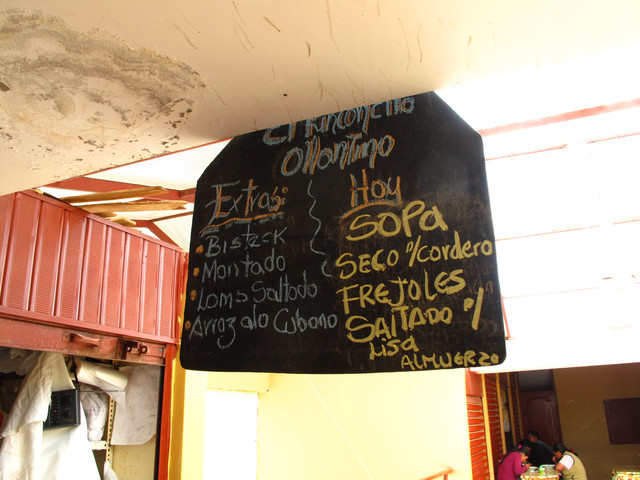 El Rinconcito
Ollantino
Extras:
Bisteck
Montado
Loms Saltado
Arroz alo Cubano
Hoy
SOPA
SECO º/cordero
FREJOLES
SALTADO º/
Lisa
ALMUERZO